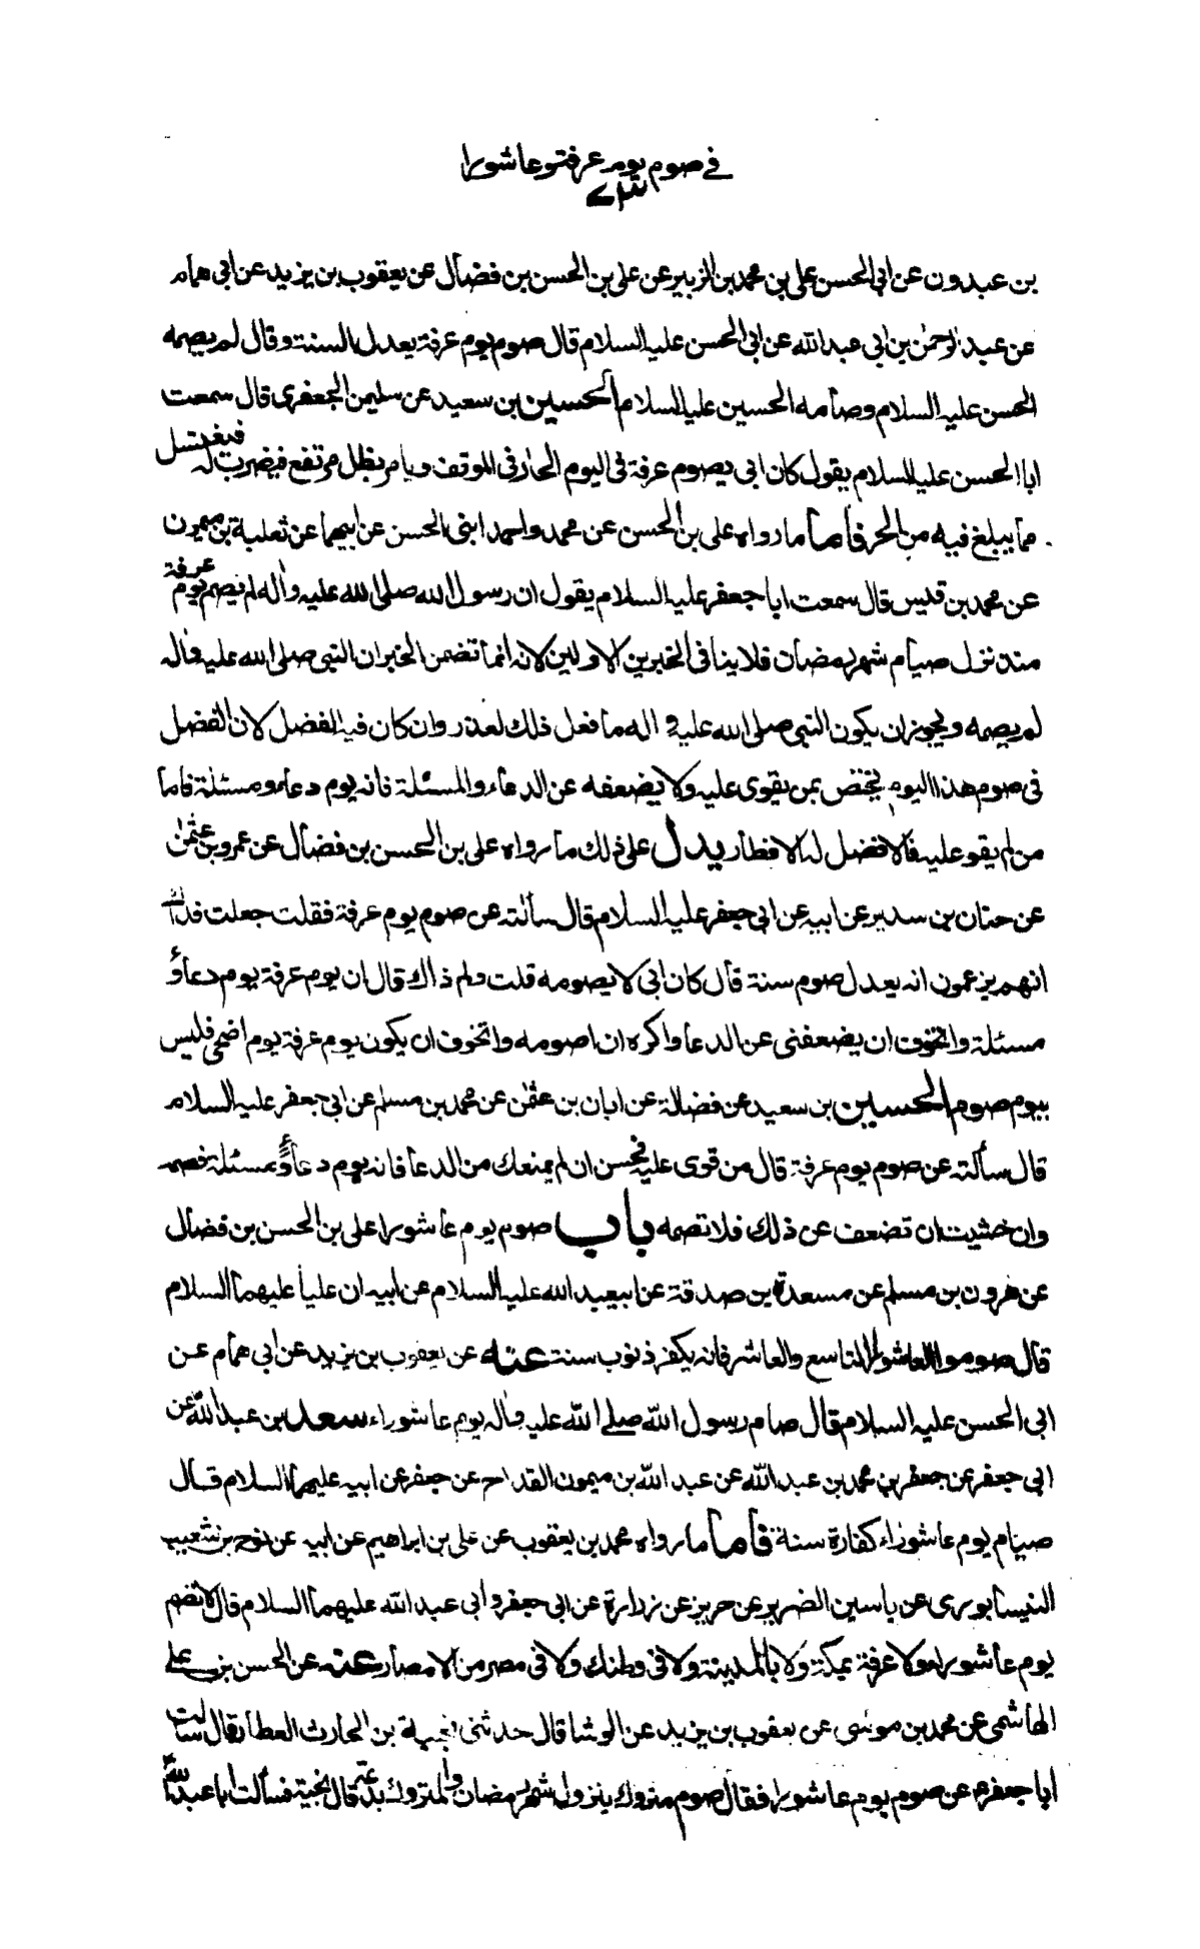 في صوم يوم عرفة وعاشورا
بن عبدون عن ابى الحسن على بن محمد بن الزبير عن على بن الحسن بن فضال عن يعقوب بن يزيد عن ابى همام
عن عبد الرحمن بن ابى عبد الله عن ابى الحسن عليه السلام قال صوم يوم عرفة يعدل السنة وقال لم يصمه
الحسن عليه السلام وصامه الحسين عليه السلام الحسين بن سعيد عن سليمن الجعفرى قال سمعت
ابا الحسن عليه السلام يقول كان ابى يصوم عرفة فى اليوم الحار فى الموقف ويامر بظل مرتفع فيضرب له فيغتسل
مما يبلغ فيه من الحر فأما ما رواه على بن الحسن عن محمد واحمد ابنى الحسن عن ابيهما عن ثعلبة بن ميمون
عن محمد بن قيس قال سمعت ابا جعفر عليه السلام يقول ان رسول الله صلى الله عليه واله لم يصم يوم عرفة
منذ نزل صيام شهر رمضان فلا ينافى الخبرين الاولين لانه انما تضمن الخبر ان النبى صلى الله عليه واله
لم يصمه ويجوز ان يكون النبى صلى الله عليه و اله ما فعل ذلك لعذر وان كان فيه الفضل لان الفضل
فى صوم هذا اليوم يختص بمن يقوى عليه ولا يضعفه عن الدعاء والمسئلة فانه يوم دعاء ومسئلة فاما
من لم يقو عليه فالافضل له الافطار يدل على ذلك ما رواه على بن الحسن بن فضال عن عمرو بن عثمن
عن حنان بن سدير عن ابيه عن ابى جعفر عليه السلام قال سألته عن صوم يوم عرفة فقلت جعلت فداك
انهم يزعمون انه يعدل صوم سنة قال كان ابى لا يصومه قلت ولم ذاك قال ان يوم عرفة يوم دعاء و
مسئلة واتخوف ان يضعفنى عن الدعا واكره ان اصومه واتخوف ان يكون يوم عرفة يوم اضحى فليس
بيوم صوم الحسين بن سعيد عن فضالة عن ابان بن عثمن عن محمد بن مسلم عن ابى جعفر عليه السلام
قال سألته عن صوم يوم عرفة قال من قوى عليه فحسن ان لم يمنعك من الدعا فانه يوم دعاء ومسئلة فصمه
وان خشيت ان تضعف عن ذلك فلا تصمه باب صوم يوم عاشورا على بن الحسن بن فضال
عن هرون بن مسلم عن مسعدة بن صدقة عن ابيعبد الله عليه السلام عن ابيه ان عليا عليهما السلام
قال صوموا العاشورا التاسع والعاشر فانه يكفر ذنوب سنة عنه عن يعقوب بن يزيد عن ابى همام عن
ابى الحسن عليه السلام قال صام رسول الله صلى الله عليه واله يوم عاشوراء سعد بن عبد الله عن
ابى جعفر عن جعفر بن محمد بن عبد الله عن عبد الله بن ميمون القداح عن جعفر عن ابيه عليهما السلام قال
صيام يوم عاشوراء كفارة سنة فأما ما رواه محمد بن يعقوب عن على بن ابراهيم عن ابيه عن نوح بن شعيب
النيسابورى عن ياسين الضرير عن حريز عن زرارة عن ابى جعفر و ابى عبد الله عليهما السلام قال لا تصم
يوم عاشورا ولا عرفة بمكة ولا بالمدينة ولا فى وطنك ولا فى مصر من الامصار عنه عن الحسن بن على
الهاشمى عن محمد بن موسى عن يعقوب بن يزيد عن الوشا قال حدثنى نجبة بن الحارث العطار قال سالت
ابا جعفر ع عن صوم يوم عاشورا فقال صوم متروك بنزول شهر رمضان والمتروك بدعة قال نجبة فسألت ابا عبد الله